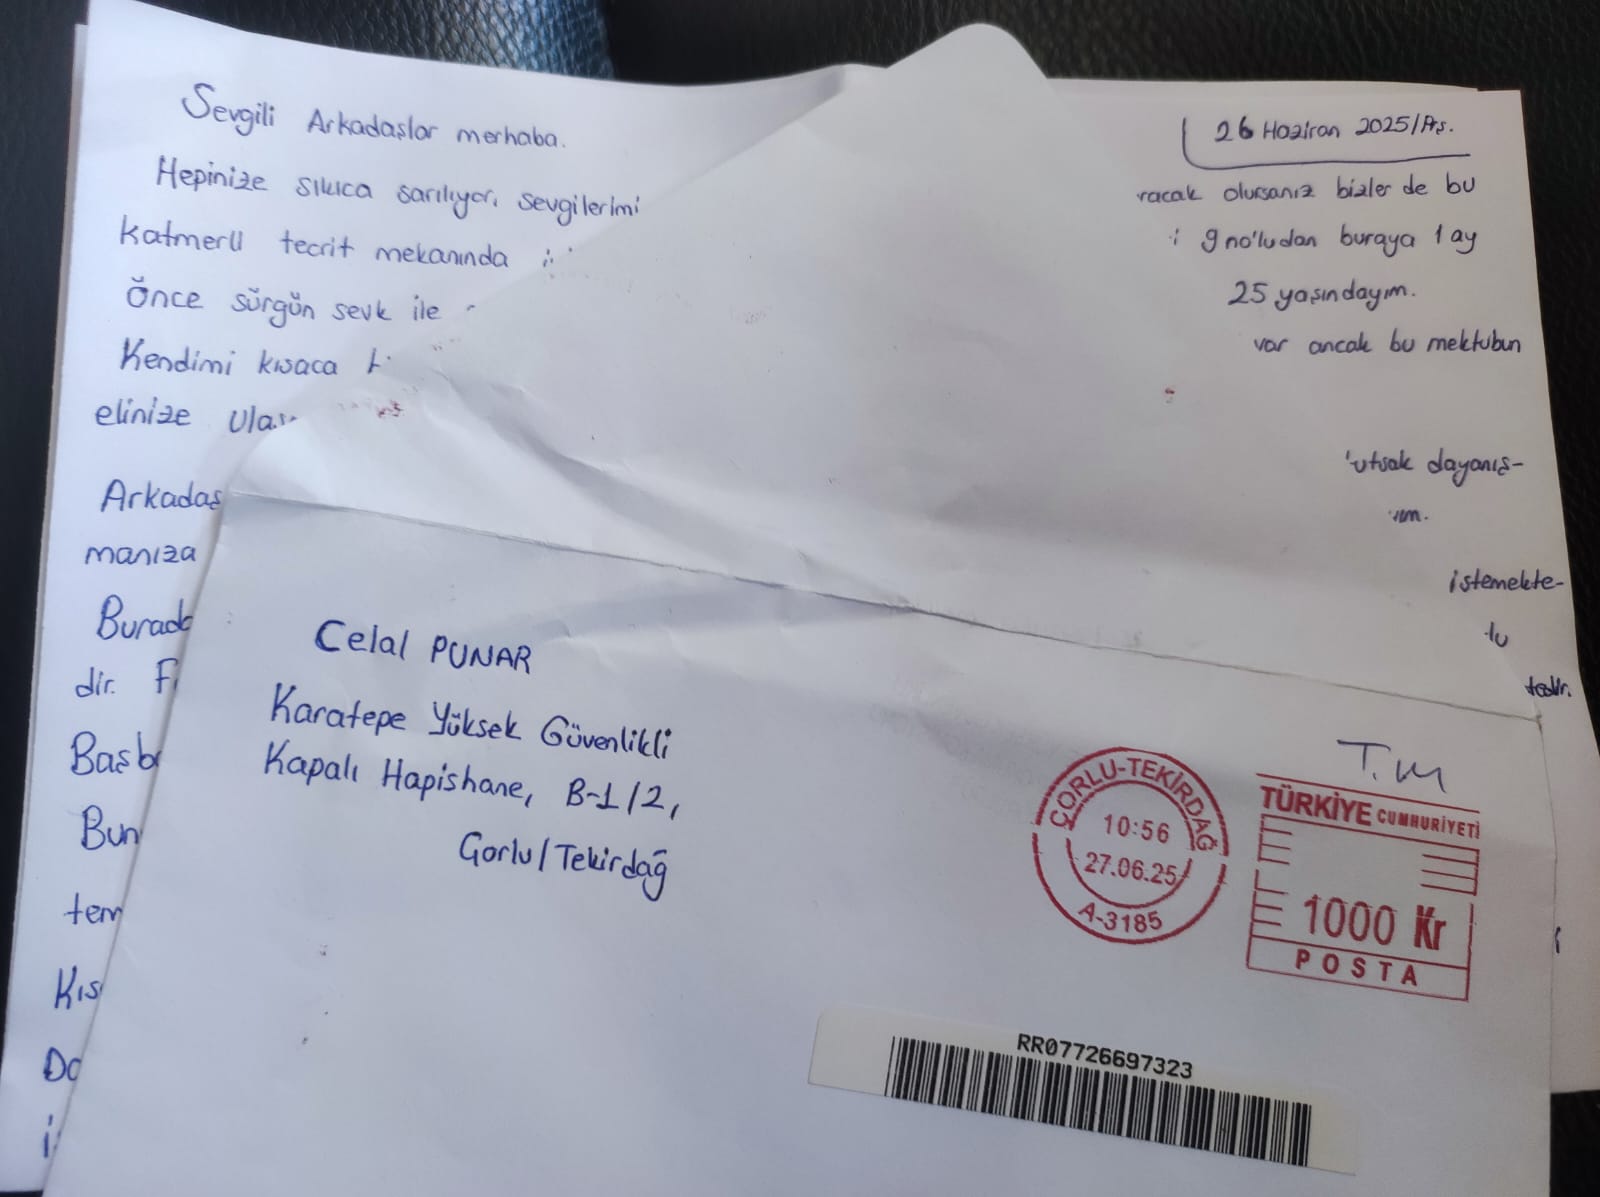 Sevgili Arkadaşlar merhaba.
26 Haziran 2025/Prş.
Hepinize sıkıca sarılıyor, sevgilerimi
racak olursanız bizler de bu
katmerli tecrit mekanında
9 no'ludan buraya 1 ay
önce sürgün sevk ile
25 yaşındayım.
Kendimi kısaca
var ancak bu mektubun
elinize ulaş
utsak dayanış-
Arkadaş
manıza
istemekte-
Burada
dir.
Başb
Bun
tem
Kıs
Celal PUNAR
Karatepe Yüksek Güvenlikli
Kapalı Hapishane, B-1/2,
Çorlu/Tekirdağ
T.M
ÇORLU-TEKİRDAĞ
10:56
27.06.25
A-3185
TÜRKİYE CUMHURİYETİ
1000 Kr
POSTA
RR07726697323